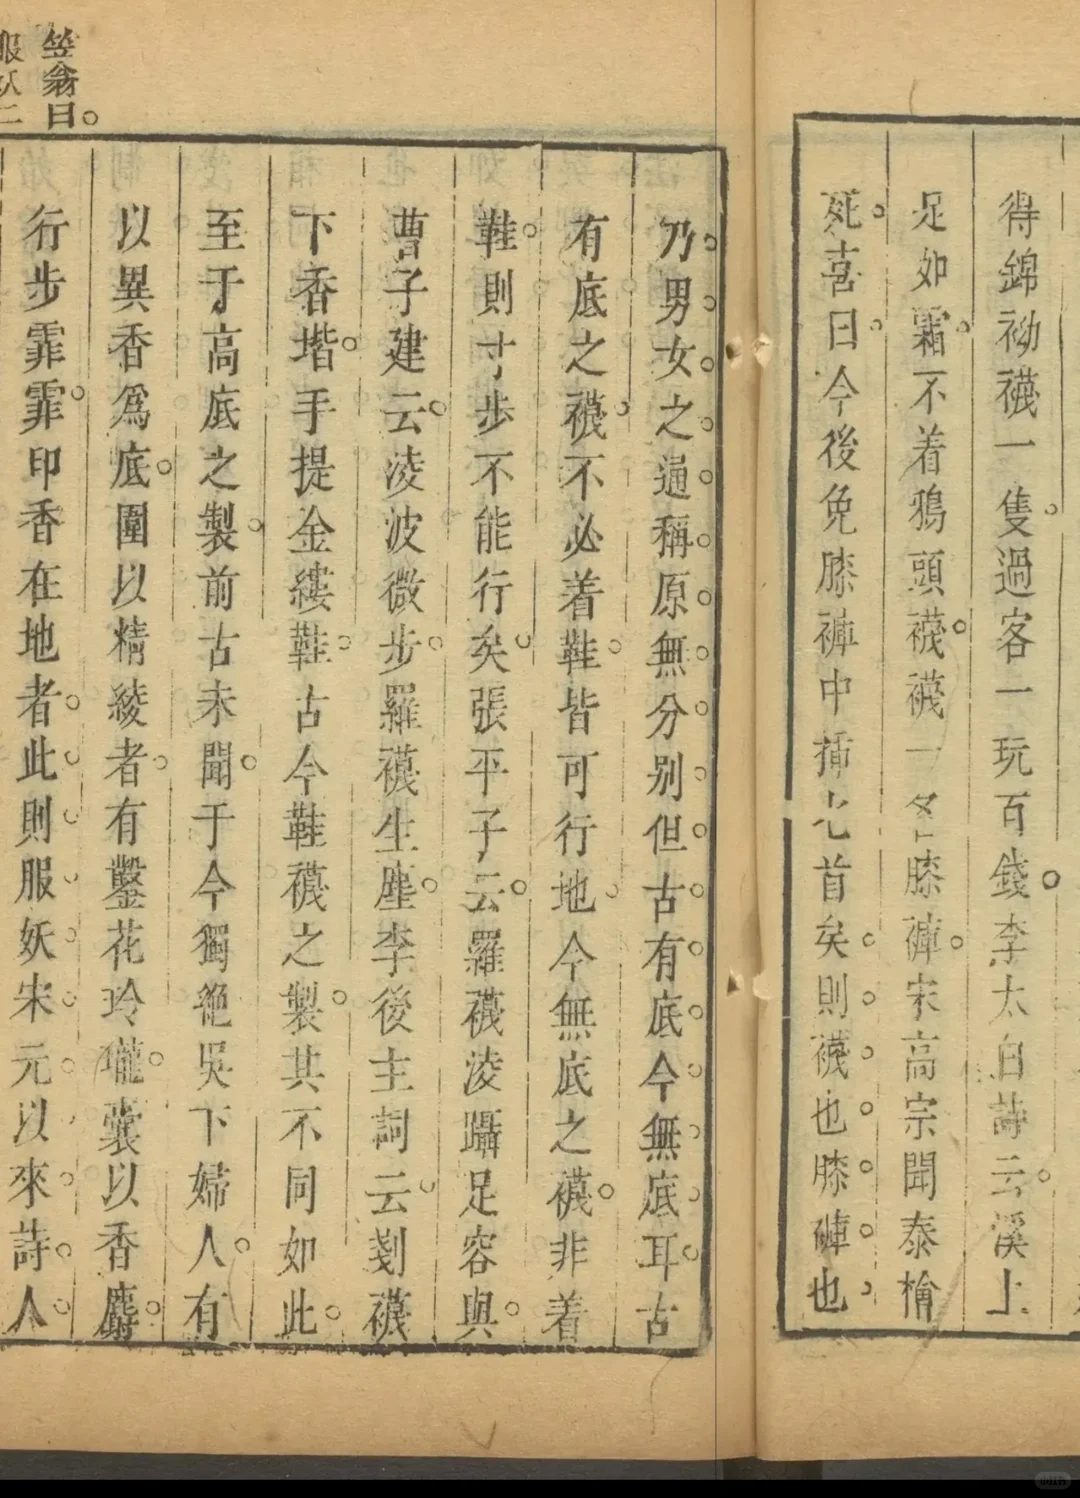 得錦袎襪一隻過客一玩百錢李太白詩云溪上
足如霜不着鴉頭襪襪一名膝褲宋高宗聞秦檜
死喜曰今後免膝褲中插匕首矣則襪也膝褲也
乃男女之通稱原無分別但古有底今無底耳古
有底之襪不必着鞋皆可行地今無底之襪非着
鞋則寸步不能行矣張平子云羅襪凌躡足容與
曹子建云凌波微步羅襪生塵李後主詞云剗襪
下香堦手提金縷鞋古今鞋襪之製其不同如此
至于高底之製前古未聞于今獨絕吳下婦人有
以異香為底圍以精綾者有鑿花玲瓏囊以香麝
行步霏霏印香在地者此則服妖宋元以來詩人
笠翁曰
服妖二